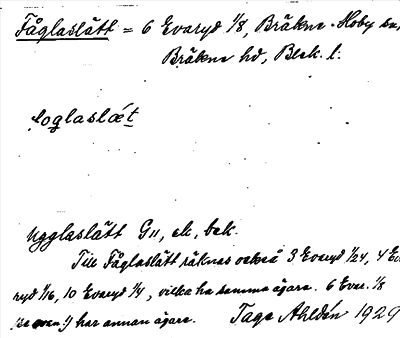 Fåglaslätt = 6 Evaryd 1/8, Bräkne-Hoby sn,
Bräkne hd, Blek. l:
foglaslæt
Ugglaslätt G11, ek, bek.
Till Fåglaslätt räknas också 3 Evaryd 1/24, 4 Eva
ryd 1/16, 10 Evaryd 1/4, vilka ha samma ägare. 6 Evar. 1/8
har annan ägare. Tage Ahldén 1929